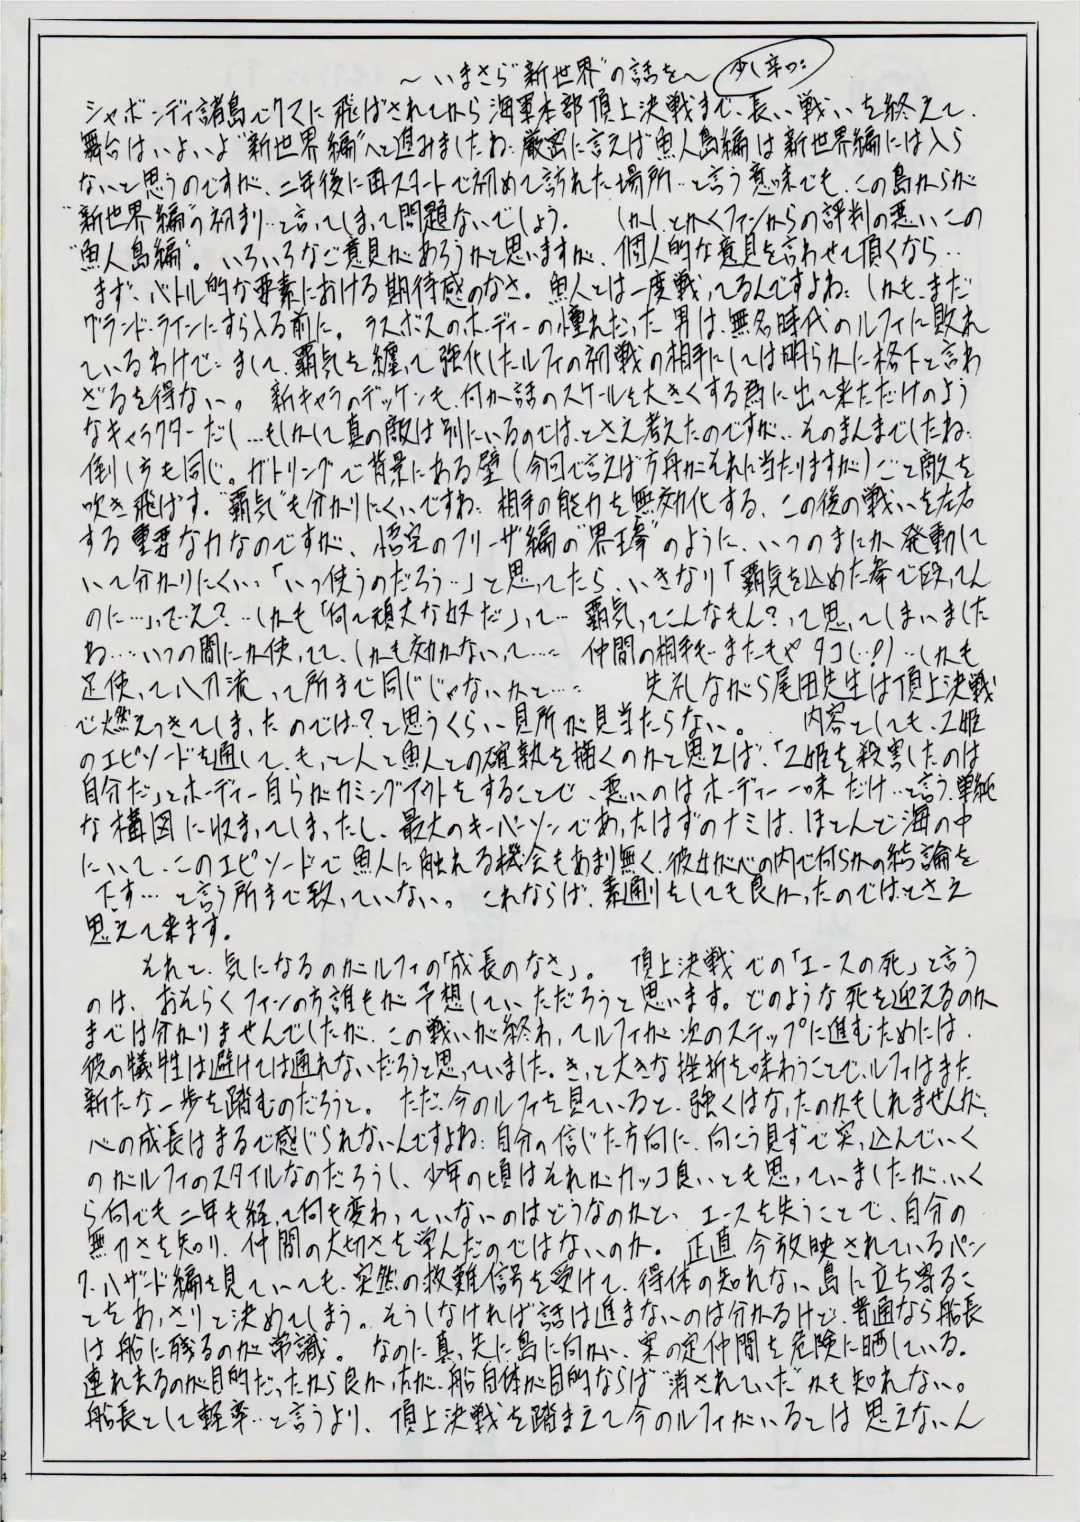 ～いまさら"新世界"の話を～ 少し辛口
シャボンディ諸島でクマに飛ばされてから海軍本部頂上決戦まで、長い戦いを終えて、
舞台はいよいよ"新世界編"へと進みましたね。厳密に言えば魚人島編は新世界編には入ら
ないと思うのですが、二年後に再スタートで初めて訪れた場所…と言う意味でも、この島からが
"新世界編"の初まり…と言ってしまって問題ないでしょう。しかし、とかくファンからの評判の悪いこの
"魚人島編"。いろいろなご意見があろうかと思いますが、個人的な意見を言わせて頂くなら…
まず、バトル的な要素における期待感のなさ。魚人とは一度戦ってるんですよね。しかも、まだ
グランドラインにすら入る前に。ラスボスのホーディーの憧れだった男は、無名時代のルフィに敗れ
ているわけで…まして、覇気を纏って強化したルフィの初戦の相手にしては明らかに格下と言わ
ざるを得ない。新キャラのデッケンも、何か話のスケールを大きくする為に出て来ただけのよう
なキャラクターだし…もしかして真の敵は別にいるのでは、とさえ考えたのですが…そのまんまでしたね。
倒し方も同じ。ガトリングで背景にある壁（今回で言えば方舟がそれに当たりますが）ごと敵を
吹き飛ばす。"覇気"も分かりにくいですね。相手の能力を無効化する、この後の戦いを左右
する重要な力なのですが、悟空のフリーザ編の"界王拳"のように、いつのまにか発動して
いて分かりにくい。「いつ使うのだろう…」と思ってたら、いきなり「覇気を込めた拳で殴ってん
のに…」って…え？…しかも「何て頑丈な奴だ」って…覇気ってこんなもん？って思ってしまいました
ね…いつの間にか使ってて、しかも効かないって…仲間の相手も…またもやタコ（…？）…しかも
足使って八刀流って所まで同じじゃないかと…失礼ながら尾田先生は頂上決戦
で燃えつきてしまったのでは？と思うくらい見所が見当たらない。内容としても、乙姫
のエピソードを通して、もっと人と魚人との確執を描くのかと思えば、「乙姫を殺害したのは
自分だ」とホーディー自らがカミングアウトをすることで、悪いのはホーディー一味だけ…と言う、単純
な構図に収まってしまったし、最大のキーパーソンであったはずのナミは、ほとんど海の中
にいて、このエピソードで魚人に触れる機会もあまり無く、彼女が心の内で何らかの結論を
下す…と言う所まで致っていない。これならば、素通りをしても良かったのでは、とさえ
思えて来ます。
それと、気になるのがルフィの「成長のなさ」。頂上決戦での「エースの死」と言う
のは、おそらくファンの方誰もが予想していただろうと思います。どのような死を迎えるのか
までは分かりませんでしたが、この戦いが終わってルフィが次のステップに進むためには、
彼の犠牲は避けては通れないだろうと思っていました。きっと大きな挫折を味わうことで、ルフィはまた
新たな一歩を踏むのだろうと。ただ、今のルフィを見ていると、強くはなったのかもしれませんが、
心の成長はまるで感じられないんですよね。自分の信じた方向に、向こう見ずで突っ込んでいく
のがルフィのスタイルなのだろうし、少年の頃はそれがカッコ良いとも思っていましたが、いく
ら何でも二年も経って何も変わっていないのはどうなのかと、エースを失うことで、自分の
無力さを知り、仲間の大切さを学んだのではないのか。正直今放映されているパン
ク・ハザード編を見ていても、突然の救難信号を受けて、得体の知れない島に立ち寄るこ
とをあっさりと決めてしまう。そうしなければ話は進まないのは分かるけど、普通なら船長
は船に残るのが常識。なのに真っ先に島に向かい、案の定仲間を危険に晒している。
連れ去るのが目的だったから良かったが、船自体が目的ならば"消されていた"かも知れない。
船長として軽率…と言うより、頂上決戦を踏まえて今のルフィがいるとは思えないん
24